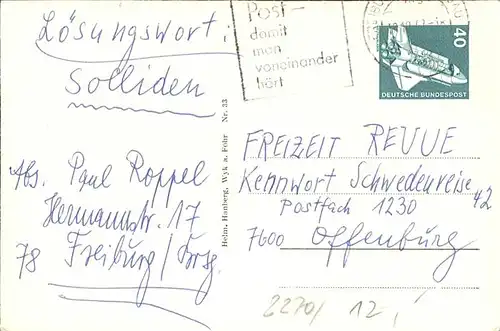 Lösungswort:
Solliden
Abs. Paul Roppel
Hermannstr. 17
78 Freiburg / Brsg.
Helm. Hamberg, Wyk a. Föhr Nr. 33
Post –
damit
man
voneinander
hört
40
DEUTSCHE BUNDESPOST
FREIZEIT REVUE
Kennwort Schwedenreise
42
Postfach 1230
7600 Offenburg
2270/ 12,-